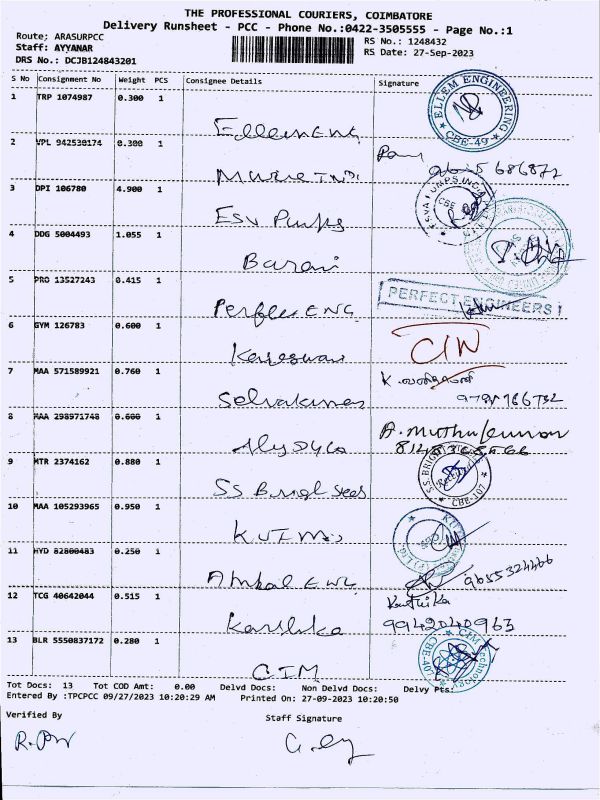 THE PROFESSIONAL COURIERS, COIMBATORE
Delivery Runsheet - PCC - Phone No.:0422-3505555 - Page No.:1
Route; ARASURPCC
RS No.: 1248432
Staff: AYYANAR
RS Date: 27-Sep-2023
DRS No.: DCJB124843201
S No Consignment No Weight PCS Consignee Details Signature
1 TRP 1074987 0.300 1
ELLEM ENGINEERING
CBE-49
Ellem Eng
2 VPL 942530174 0.300 1
3 DPI 106780 4.900 1
ESVA PUMPS INDIA
CBE
Esv Pumps
4 DDG 5004493 1.055 1
Barani
5 PRO 13527243 0.415 1
PERFECT ENGINEERS
Perfect ENG
6 GYM 126783 0.600 1
CIN
7 MAA 571589921 0.760 1
Selvakumar
9791766732
8 MAA 298971748 0.600 1
A. Muthukumar
9 MTR 2374162 0.880 1
S.S. BRIGHT
CBE-107
SS Bright Steel
10 MAA 105293965 0.950 1
11 HYD 82800483 0.250 1
Ambal ENG
9655324466
12 TCG 40642044 0.515 1
Karthika
9942040963
Karthika
13 BLR 5550837172 0.280 1
CIM Technology
CBE-407
CIM
Tot Docs: 13 Tot COD Amt: 0.00 Delvd Docs: Non Delvd Docs: Delvy Pts:
Entered By :TPCPCC 09/27/2023 10:20:29 AM Printed On: 27-09-2023 10:20:50
Verified By
Staff Signature